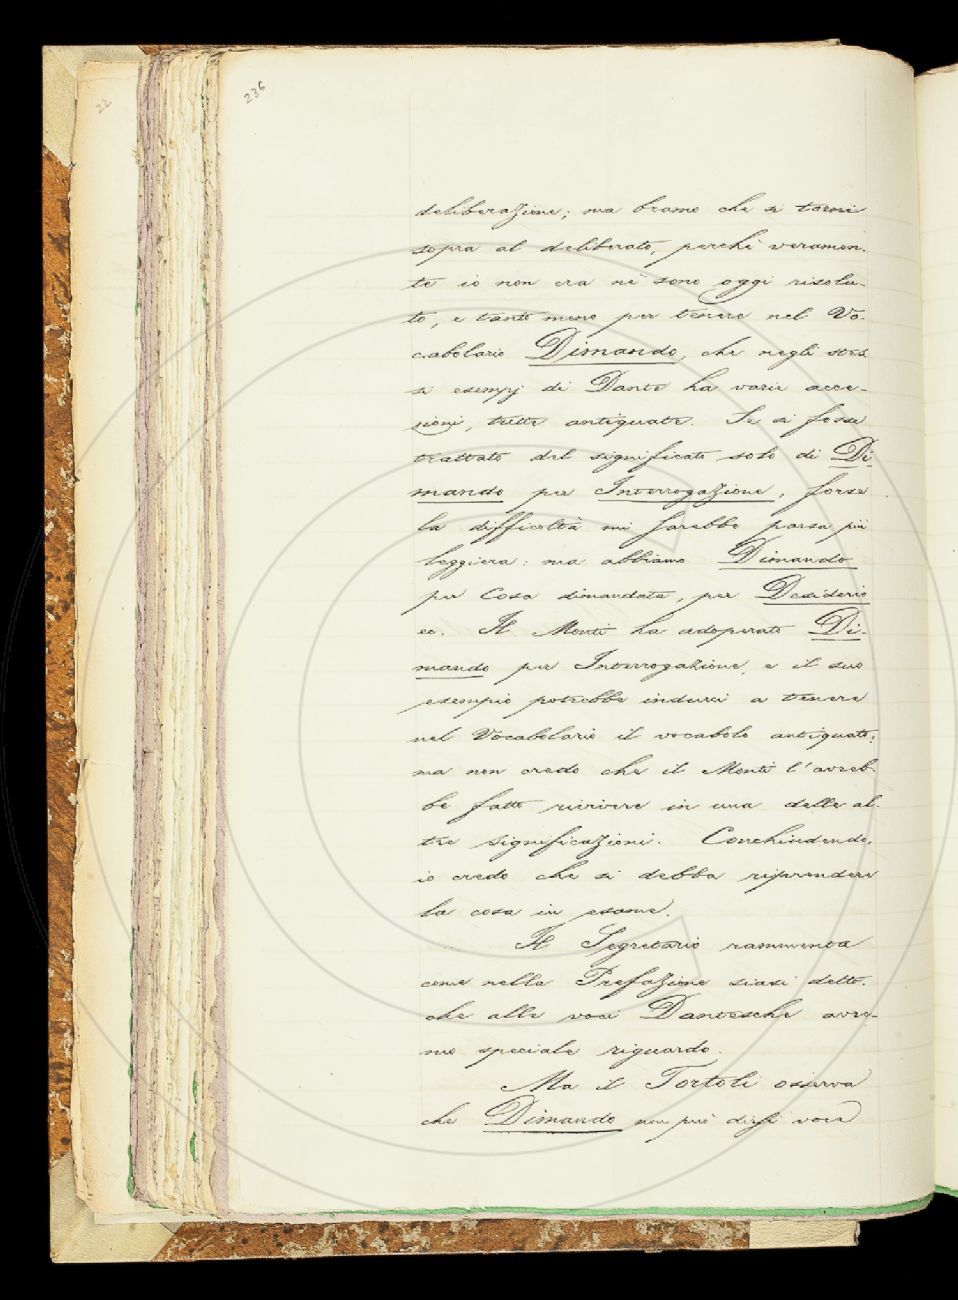 22
236
deliberazione; ma bramo che si torni
sopra al deliberato, perchè veramen-
te io non era nè sono oggi risolu-
to, e tanto meno per tenere nel Vo-
cabolario Dimando, che negli stes-
si esempj di Dante ha varie acce-
zioni, tutte antiquate. Se si fosse
trattato del significato solo di Di-
mando per Interrogazione, forse
la difficoltà mi sarebbe parsa più
leggiera: ma abbiamo Dimando
per Cosa dimandata, per Desiderio
ec. Il Monti ha adoperato Di-
mando per Interrogazione, e il suo
esempio potrebbe indurci a tenere
nel Vocabolario il vocabolo antiquato;
ma non credo che il Monti l'avreb-
be fatto rivivere in una delle al-
tre significazioni. Conchiudendo,
io credo che si debba riprendere
la cosa in esame.
Il Segretario rammenta
come nella Prefazione siasi detto,
che alle voci Dantesche avre-
mo speciale riguardo.
Ma il Tortoli osserva
che Dimando non può dirsi voce